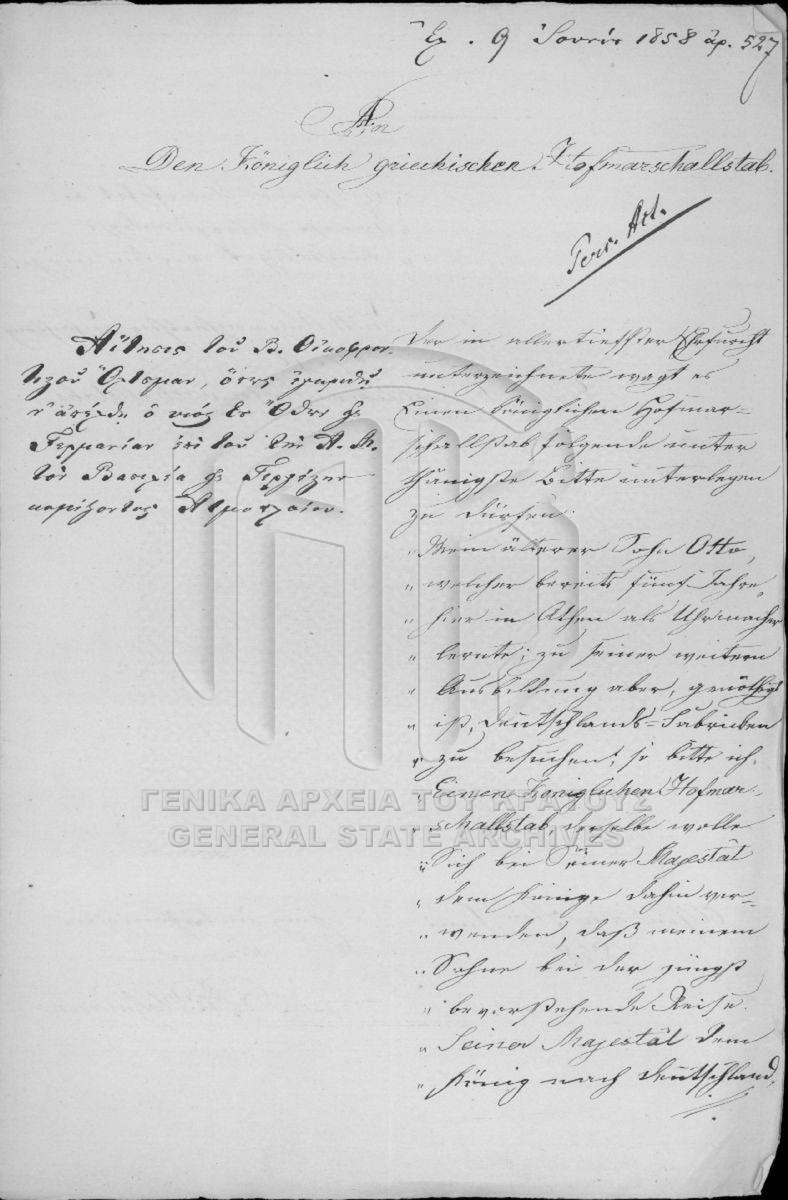 Ἐλ. 9 Ἰουνίου 1858 ἀρ. 527
An
Den Königlich griechischen Hofmarschallstab.
Pers. Act.
Αἴτησις τοῦ Β. Οἰκοφρον-
τιστοῦ
ν' ἀπέλθῃ ὁ υἱός του Ὄθων εἰς
Γερμανίαν ἐπὶ τοῦ τὴν Α. Μ.
τὸν Βασιλέα εἰς Τεργέστην
κομίζοντος Ἀτμοπλοίου.
Der in allertiefster Ehrfurcht
unterzeichnete wagt es
Einen Königlichen Hofmar-
schallstab folgende unter
thänigste Bitte unterlegen
zu dürfen:
„Mein älterer Sohn Otto,
„ welcher bereits fünf Jahre,
„ hier in Athen als Uhrmacher
„ lernte; zu seiner weitern
„ Ausbildung aber, genöthigt
„ ist, Deutschlands-Fabricken
„ zu besuchen; so bitte ich
„ Einen Königlichen Hofmar-
„ schallstab derselbe wolle
„ Sich bei Seiner Majestät
„ dem Könige dahin ver-
„ wenden, daß meinem
„ Sohne bei der jüngst
„ bevorstehende Reise
„ Seiner Majestät dem
„ König nach Deutschland,
ΓΕΝΙΚΑ ΑΡΧΕΙΑ ΤΟΥ ΚΡΑΤΟΥΣ
GENERAL STATE ARCHIVES